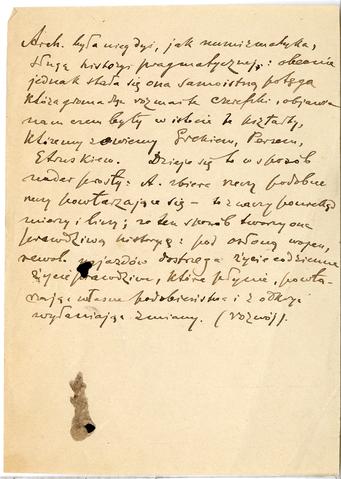 Arch. była niegdyś, jak numizmatyka,
sługą historji pragmatycznej: obecnie
jednak stała się ona samoistną potęgą
która gromadząc rozmaite czerepki, objawia
nam czem były w istocie te kształty,
któremy zowiemy Grekiem, Persem,
Etruskiem. Dzieje się to w sposób
nader prosty: A. zbiera rzeczy podobne
rzeczy powtarzające się – to znaczy
miary i liczy; w ten sposób tworzy ona
prawdziwą historję: pod osłoną wojen,
najazdów dostrzega życie codzienne
życie prawdziwe, które płynie, powta-
rzając własne podobieństwa i z
wyłaniając zmiany. (rozwój).